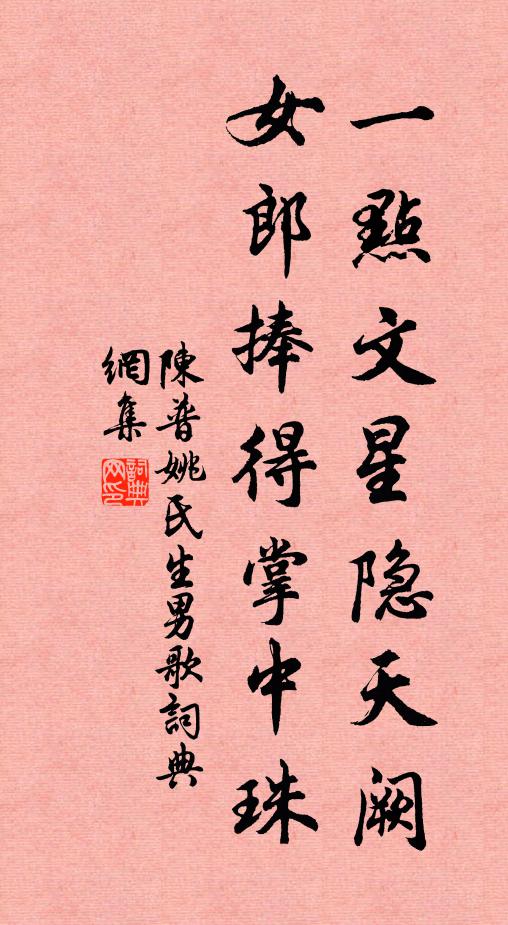 一點文星隐天阙
女郎捧得掌中珠
陳普姚氏生男歌詞典
網集
詞典网印